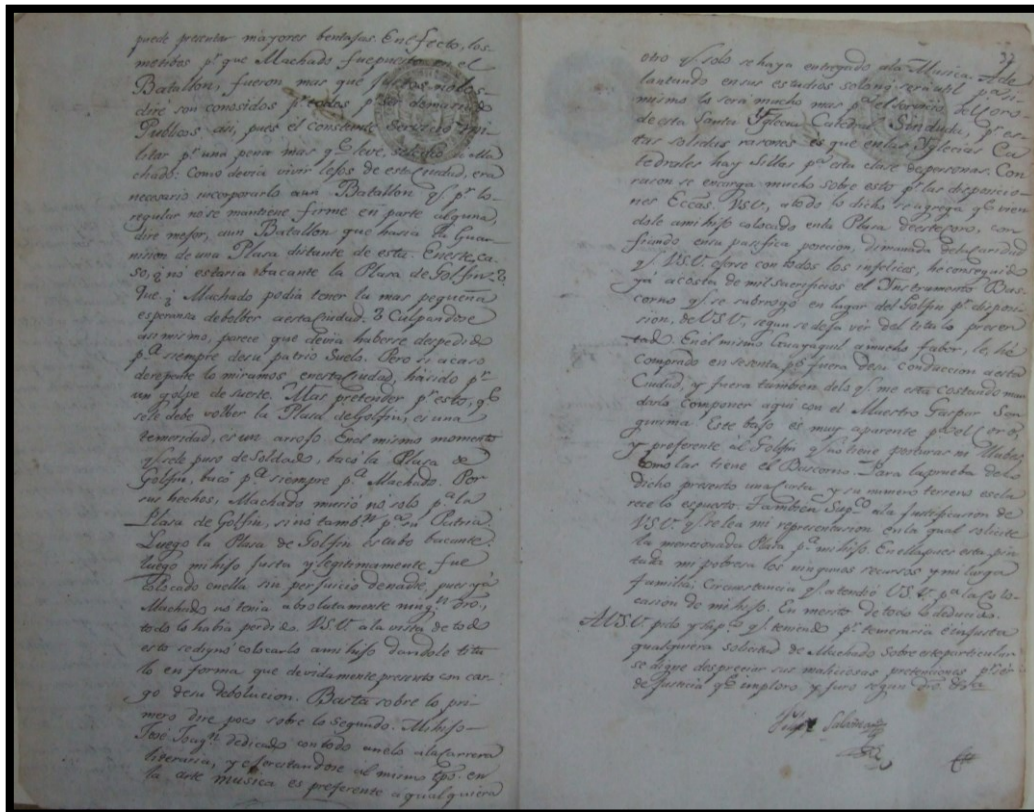 puede presentar mayores bentajas. En efecto, los
motibos pr. que Machado fue puesto en el
Batallon, fueron mas que justos no los
diré son conosidos pr. todos pr. ser demasiado
Publicos asi, pues el constante servicio mi-
litar pr. una pena mas qe. leve, Ma-
chado: Como devia vivir lejos de esta Ciudad, era
necesario incorporarlo aun Batallon qe. pr. lo
regular no se mantiene firme en parte alguna,
diré mejor, aun Batallon que hasia la Guar-
nision de una Plasa distante de esta. En este ca-
so, ¿no estaria vacante la Plasa de Golfin?
Que ¿Machado podia tener la mas pequeña
esperanza de bolber a esta Ciudad? Culpandose
asi mismo, parece que devia haberse despedido
pa. siempre de su patrio Suelo. Pero si acaso
de repente lo miramos en esta Ciudad, há sido pr.
un golpe de suerte. Mas pretender pr. esto, qe.
se le debe volver la Plasa de Golfin, es una
temeridad, es un arrojo. En el mismo momento
qe. se le puso de Soldado, bacó la Plasa de
Golfin, bacó pa. siempre pa. Machado. Por
sus hechos, Machado murió no solo pa. la
Plasa de Golfin, si no tambn. pa. su Patria.
Luego la Plasa de Golfin es bacante.
Luego mi hijo justa y legitimamente fue
colocado en ella sin perjuicio de nadie, pues yá
Machado no tenia absolutamente ningn. dro.,
todo lo habia perdido. V.S.V. a la vista de todo
esto se dignó colocarlo a mi hijo dandole titu-
lo en forma que devidamente presento con car-
go de su debolucion. Basta sobre lo pri-
mero diré poco sobre lo segundo. Mi hijo
José Joaqn. dedicado con todo anelo a la Carrera
literaria, y ejersitandose al mismo tpo. en
la arte musica es preferente a qualquiera
otro qe. solo se haya entregado a la Musica. Ade-
lantando en sus estudios sobang será util pa. si
mismo lo será mucho mas pa. el servicio del Coro
de esta Santa Yglecia Catedral. Sin duda, pr. es-
tas solidas rasones es que en las Yglecias Ca-
tedrales hay Sillas pa. esta clase de personas. Con
rason se encarga mucho sobre esto pr. las disposicio-
nes Eccas. V.S.V., a todo lo dicho se agrega qe. vien-
dole a mi hijo colocado en la Plasa de este coro, con-
fiando en su pasifica poscion, dimanada de la Caridad
qe. V.S.V. ejerse con todos los infelices, he conseguido
yá acosta de mil sacrificios el Instrumento Bus-
corno qe. se subrrogo en lugar del Golfin pr. dispocision
de V.S.V., segun se deja ver del titulo presen-
tado. En el mismo Guayaquil a mucho fabor, le, hé
comprado en sesenta ps. fuera de su conduccion a esta
Ciudad, y fuera tambien de lo qe. me esta costando man-
darlo componer aqui con el Maestro Gaspar San-
gurima. Este bajo es muy aparente pa. el Coro,
y preferente al Golfin qe. no tiene posturas ni Mudas
como las tiene el Buscorno. Para la prueba de lo
dicho presento una Carta y su numero tersero escla-
rece lo espuesto. Tambien Supco. a la justificasion de
V.S.V. qe. se lea mi representasion en la qual solicité
la mencionada Plasa pa. mi hijo. En ella pues esta pin-
tada mi pobresa los ningunos recursos y mi larga
familia: Circunstancia qe. atendió V.S.V. pa. la Colo-
casion de mi hijo. En merito de todo lo deducido.
A V.S.V. pido y suplco. qe. teniendo pr. temeraria é injusta
qualquiera solicitud de Machado sobre este particular
se digne despreciar sus maliciosas pretenciones pr. ser
de justicia qe. imploro, y juro segun dro. &a.